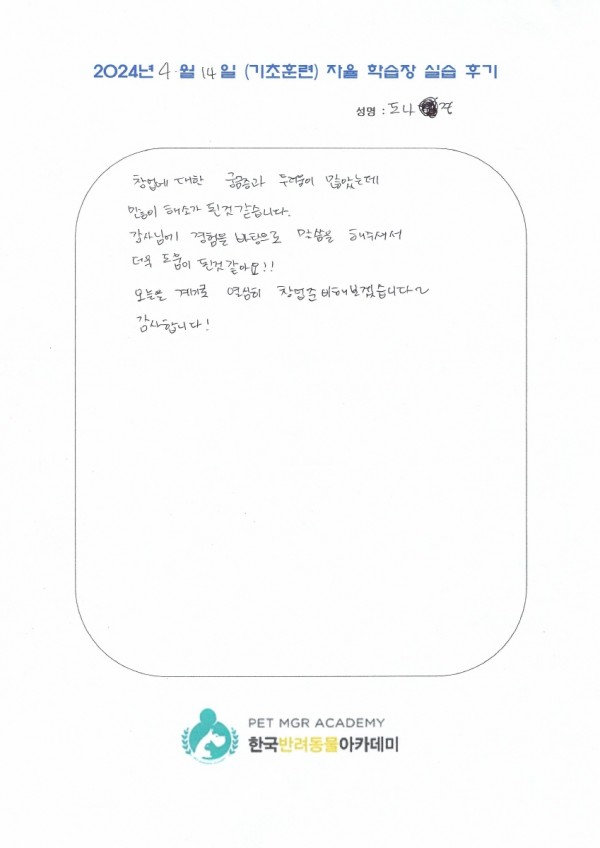 2024년 4월 14일 (기초훈련) 자율 학습장 실습 후기
성명 : 도나
창업에 대한 궁금증과 두려움이 많았는데
많이 해소가 된것같습니다.
강사님에 경험을 바탕으로 말씀을 해주셔서
더욱 도움이 된것같아요!!
오늘을 계기로 열심히 창업준비해보겠습니다~
감사합니다!
PET MGR ACADEMY
한국반려동물아카데미